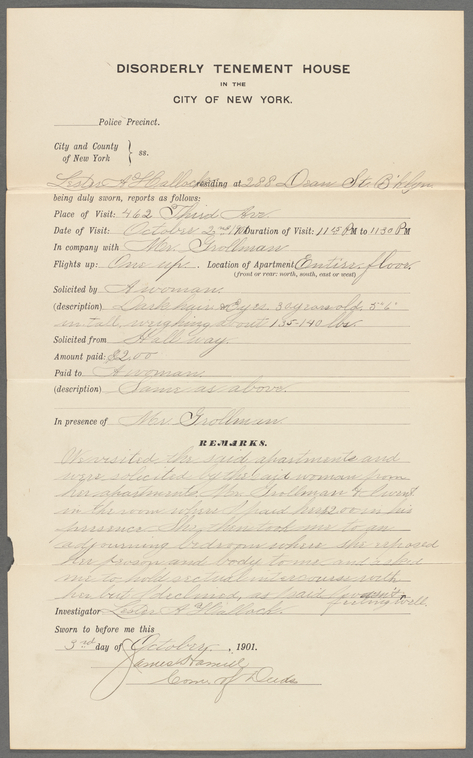 DISORDERLY TENEMENT HOUSE
IN THE
CITY OF NEW YORK.
Police Precinct.
City and County
of New York } ss.
Lester A residing at 288 Dean St. B'klyn
being duly sworn, reports as follows:
Place of Visit: 462 Third Ave.
Date of Visit: October 2nd 1901 Duration of Visit: 11 PM to 11 30 PM
In company with Mr. Grollman
Flights up: One up. Location of Apartment Entire floor
(front or rear: north, south, east or west)
Solicited by A woman.
(description) Dark hair & eyes. 30 years old, 5' 6"
in tall, weighing about 135-140 lbs.
Solicited from Hallway.
Amount paid: $2.00
Paid to A woman.
(description) Same as above.
In presence of Mr. Grollman
REMARKS.
We visited the said apartments and
were solicited by the said woman from
her apartments. Mr. Grollman & I went
in the room where I paid her $2.00 in his
presence. She then took me to an
adjourning bedroom where she exposed
her person and body to me and asked
me to hold sexual intercourse with
her but I declined, as I said I wasn't
feeling well.
Investigator Lester A
Sworn to before me this
3rd day of October, 1901.
James
Com. of Deeds